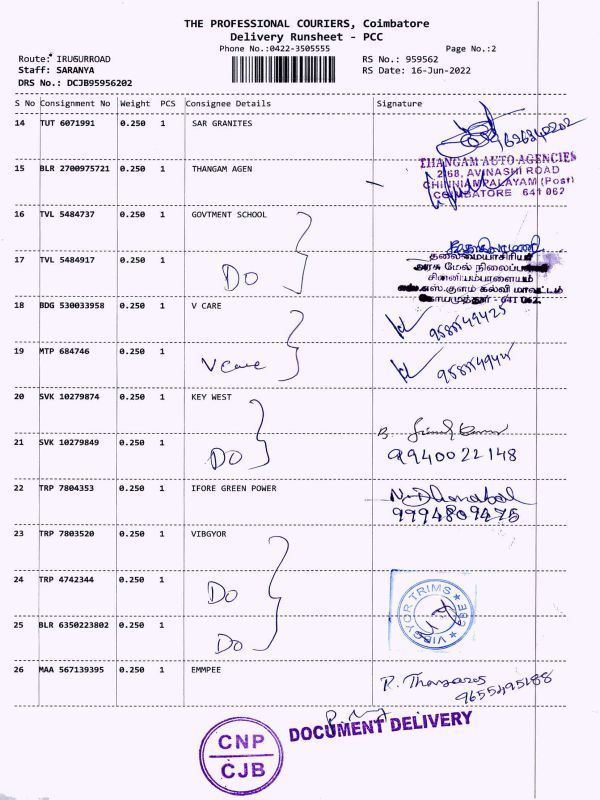 THE PROFESSIONAL COURIERS, Coimbatore
Delivery Runsheet - PCC
Phone No.:0422-3505555 Page No.:2
Route: IRUGURROAD RS No.: 959562
Staff: SARANYA RS Date: 16-Jun-2022
DRS No.: DCJB95956202
S No Consignment No Weight PCS Consignee Details Signature
14 TUT 6071991 0.250 1 SAR GRANITES
15 BLR 2700975721 0.250 1 THANGAM AGEN
THANGAM AUTO AGENCIES
2/68, AVINASHI ROAD
CHINNIAMPALAYAM (Post)
COIMBATORE 641 062
16 TVL 5484737 0.250 1 GOVTMENT SCHOOL
17 TVL 5484917 0.250 1 Do
தலைமையாசிரியர்
அரசு மேல் நிலைப்
சின்னியம்பாளையம்
எஸ்.எஸ்.குளம் கல்வி மாவட்டம்
கோயமுத்தூர் - 641 062.
18 BDG 530033958 0.250 1 V CARE
19 MTP 684746 0.250 1 V care
20 SVK 10279874 0.250 1 KEY WEST
21 SVK 10279849 0.250 1 Do 9940022148
22 TRP 7804353 0.250 1 IFORE GREEN POWER N. Dhanabal
9994809475
23 TRP 7803520 0.250 1 VIBGYOR
24 TRP 4742344 0.250 1 Do
VIBGYOR TRIMS
25 BLR 6350223802 0.250 1 Do
26 MAA 567139395 0.250 1 EMMPEE
9655495188
DOCUMENT DELIVERY
CNP
CJB